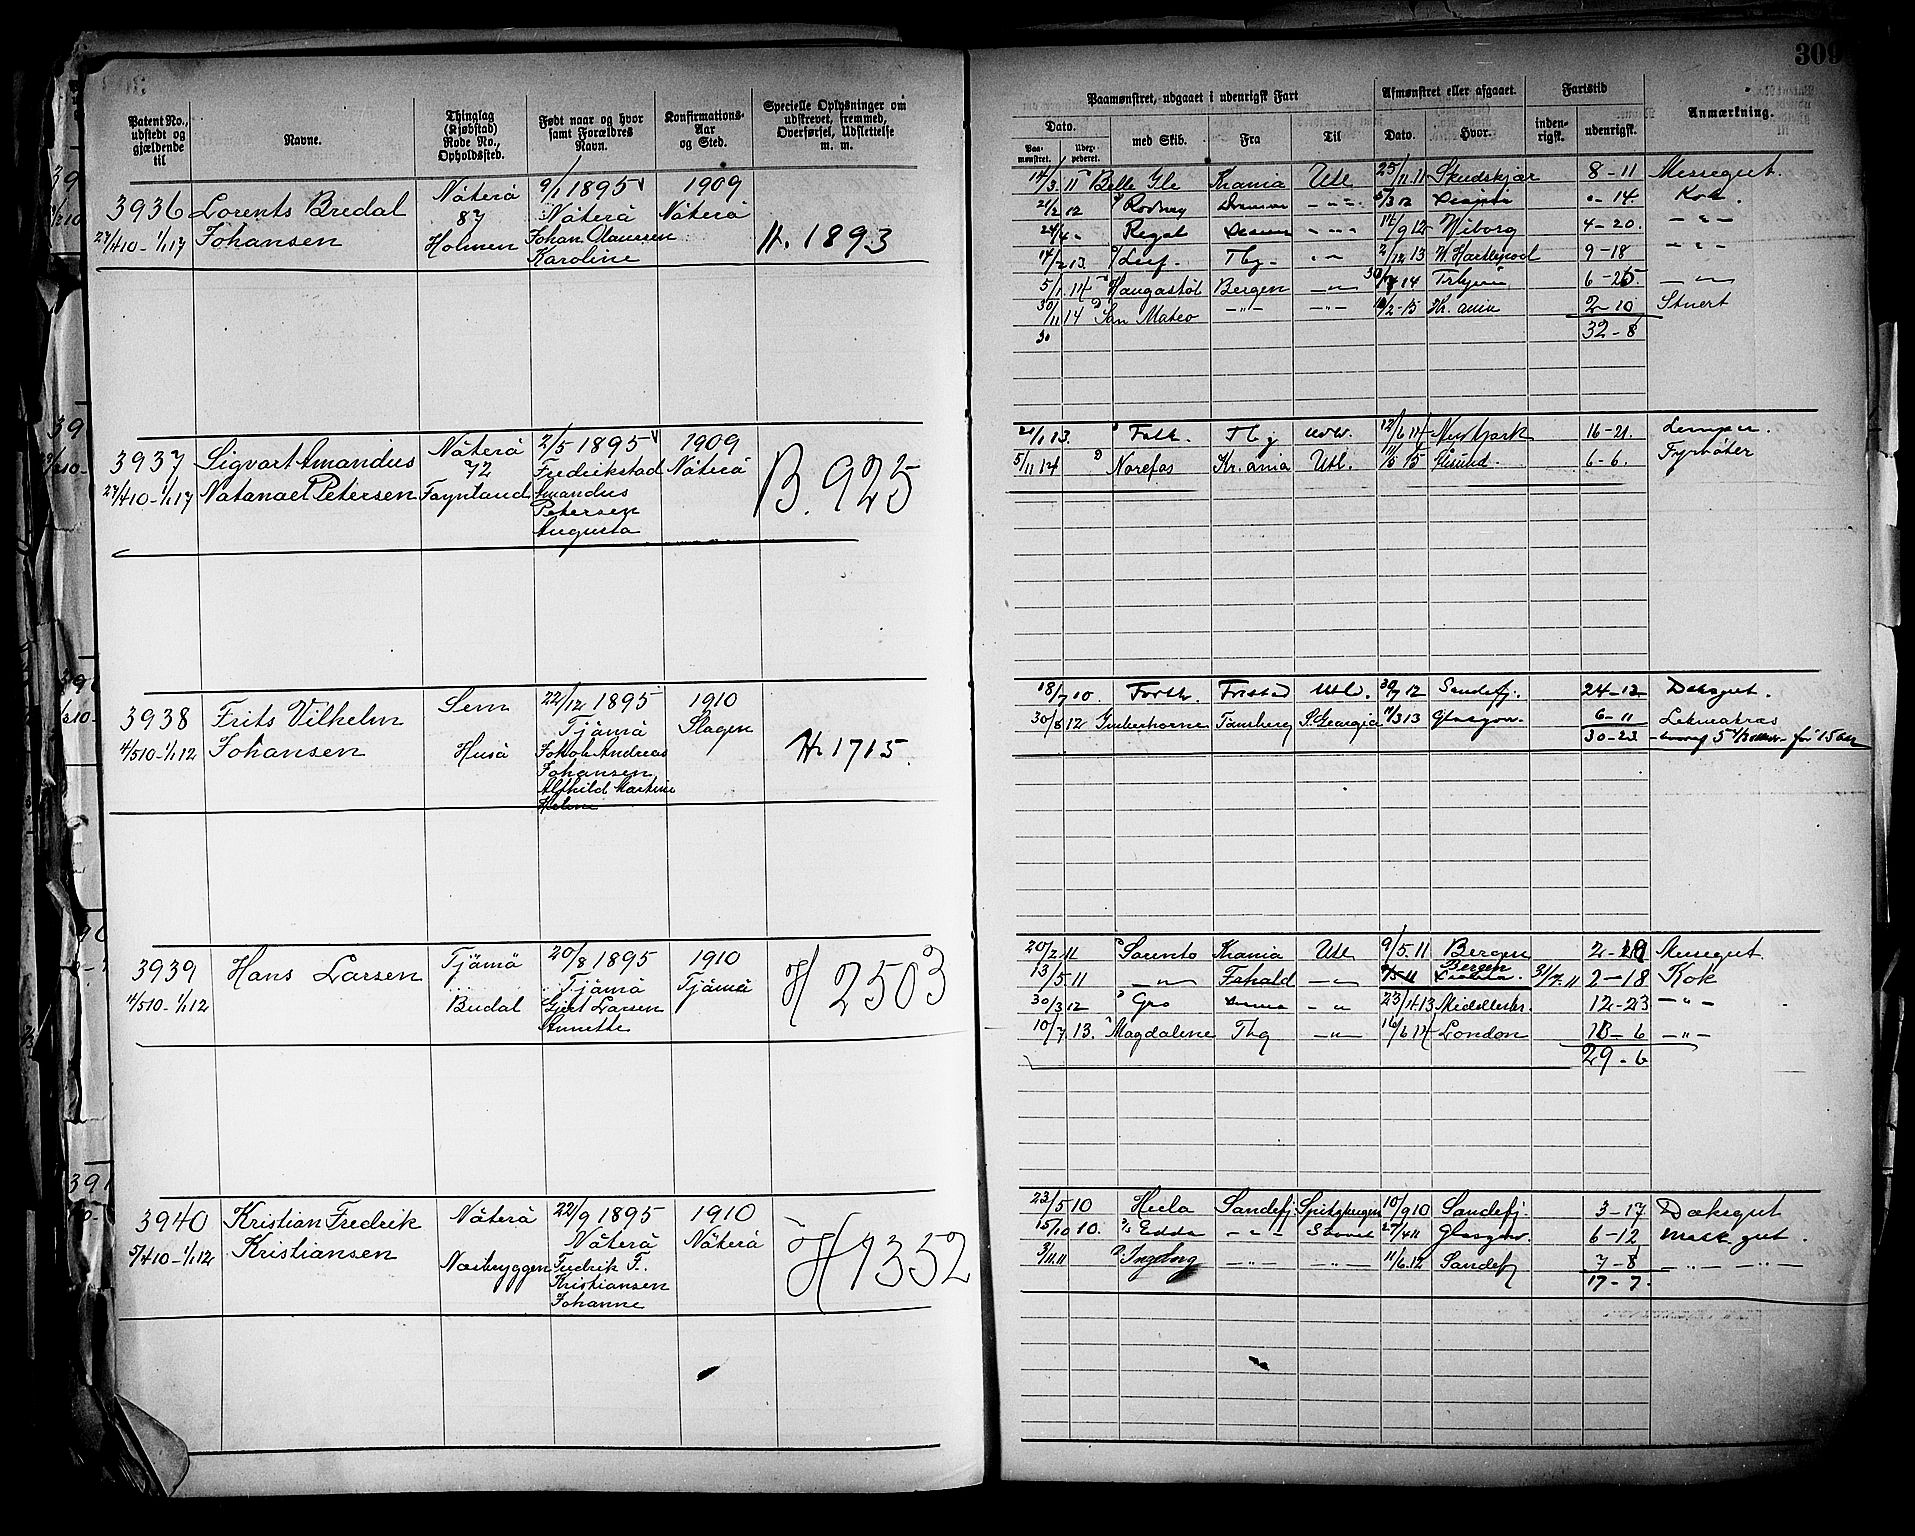 309
Patent No., udstedt og gjældende til
Navne.
Thinglag (Kjøbstad) Rode No., Opholdssted.
Født naar og hvor samt Forældres Navn.
Konfirmations-Aar og Sted.
Specielle Oplysninger om udskrevet, fremmed, Overførsel, Udslettelse m. m.
Paamønstret, udgaaet i udenrigsk Fart
Afmønstret eller afgaaet.
Fartstid
Anmærkning.
Dato.
med Skib.
Fra
Til
Dato.
Hvor.
indenrigsk.
udenrigsk.
Paamønstret.
3936 Lorents Bredal Nöterö 9/1 1895 1909
27/4 10 - 1/1 17 Johansen 87 Nöterö Nöterö
Holmen Johan Olaussen H. 1893
Karoline
14/3 11 Belle Ile Krania Utl 25/11 11 Skudskjær 8-11 Messegut.
21/2 12 Rodney -"- -14 Kok.
24/4 - Regal -"- 14/9 12 Wiborg 4-20 -"-
14/2 13 Leif Tbg - 2/12 13 W. Hartlepool 9-18 -"-
5/1 14 Haugastøl Bergen -"- 6-25 -"-
30/11 14 San Mateo -"- -"- Kr. ania 2-10 Stuert
30 32-8
3937 Sigvart Amandus Nöterö 2/5 1895 1909
27/4 10 - 1/1 17 Natanael Petersen 72 Fredrikstad Nöterö B. 925
Føynland Amandus
Petersen
Augusta
21/1 13 Falk. Tbg 12/6 14 16-21 Lemper.
5/11 14 Norefos Kr. ania Utl. 6-6. Fyrbøter
3938 Frits Vilhelm Sem 22/12 1895 1910
4/5 10 - 1/1 12 Johansen Husö Tjömö Slagen H 1715.
Jakob Andreas
Johansen,
Alfhild Martine
18/7 10. Forth. Frstad Utl. 30/7 12 Sandefj. 24-12 Dæksgut.
30/8 12 Tønsberg S. Georgia 11/3 13 Glasgow. 6-11
30-23
3939 Hans Larsen Tjömö 20/8 1895 1910
4/5 10 - 1/1 12 Tjömö Tjömö H 2503
Budal Gjert Larsen
Annette
20/2 11 Sorento Krania Utl 9/5 11 Bergen Messegut.
13/5 11 -"- -"- Bergen 31/7 11 2-18 Kok
30/3 12 Gro -"- 23/4 13 Middlesbr. 12-23 -"-
10/7 13. Magdalene Tbg -"- 16/6 14 London -"-
29-6
3940 Kristian Fredrik Nöterö 22/9 1895 1910
5/4 10 - 1/1 12 Kristiansen Nöterö Nöterö H 1352
Næsbryggen Fredrik F.
Kristiansen
Johanne
23/5 10 Hecla Sandefj Spitzbergen 10/9 10 Sandefj. 3-17 Dæksgut
15/10 10. Edda -"- 27/4 11 Glasgow. 6-12 Mask gut.
3/11 11 Ingeborg -"- -"- 11/6 12 Sandefj 7-8 -"- -"-
17-7.